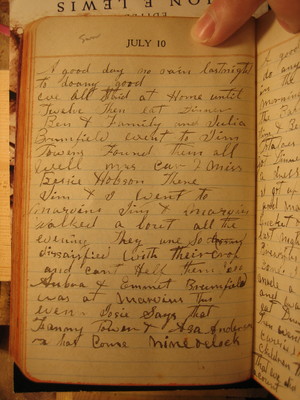 ON E LEWIS
JULY 10
A good day no rain last night
to doany good
we All Staid at Home until
Twelve Then Eat Dinner
Ben & Family and Julia
Brumfield went to Jim
Towers Found Them all
well Mrs Carr & Miss
Bessie Hobson There
Jim & I went to
Marvins Jim & Marvin
walked a bout all the
evening They are So
dissatisfied with their crop
and cant Help Them
Aubra & Emmet Brumfield
was at Marvins This
even Josie Says that
Fannie Tower & Asa Anderson
has Come Nine oclock